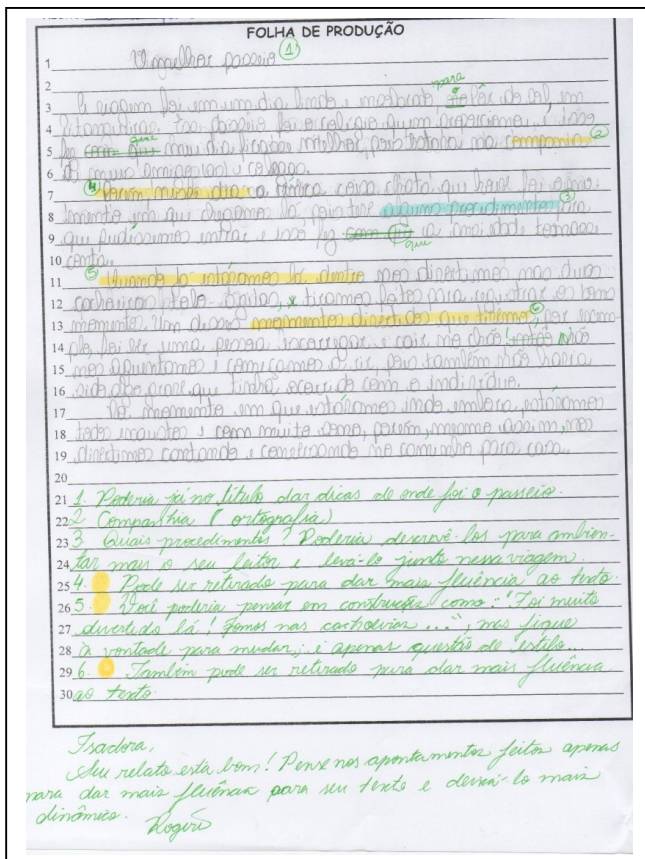 FOLHA DE PRODUÇÃO
1 O melhor passeio (1)
2 para
3 A viagem foi em um dia lindo e ensolarado, no pôr do sol, em
4 foi o colégio quem proporcionou, e isso
5 fez com que meu dia ficasse melhor, pois estava na compania (2)
6 de meus amigos e colegas.
7 (4) Porém nesse dia a única coisa chata que houve foi o
8 momento em que chegamos lá, pois teve alguns procedimentos (3) para
9 que pudéssemos entrar e isso fez com que a ansiedade tomasse
que
10 conta.
11 (5) Quando já estávamos lá dentro nos divertimos nas duas
12 cachoeiras, tiramos fotos para registrar os bons
13 momentos. Um desses momentos divertidos que tivemos, (6) por exem-
14 plo, foi ver uma pessoa escorregar e cair no chão! Não
15 nos aguentamos e começamos a rir, pois também não havia
16 sido algo grave que tinha ocorrido com o indivíduo.
17 No momento em que estávamos indo embora, estávamos
18 todos exaustos e com muito sono, porém, mesmo assim, nos
19 divertimos cantando e conversando no caminho para casa.
20
21 1. Poderia já no título dar dicas de onde foi o passeio.
22 2 Companhia (ortografia)
23 3. Quais procedimentos? Poderia descrevê-los para ambien-
24 tar mais o seu leitor e levá-lo junto nessa viagem.
25 4. Pode ser retirado para dar mais fluência ao texto.
26 5. Você poderia pensar em construções como: "Foi muito
27 divertido lá! Fomos nas cachoeiras ...", mas fique
28 à vontade para mudar, é apenas questão de estilo...
29 6. Também pode ser retirado para dar mais fluência
30 ao texto.
Isadora,
Seu relato está bom! Pense nos apontamentos feitos apenas
para dar mais fluência para seu texto e deixá-lo mais
dinâmico. Rogério